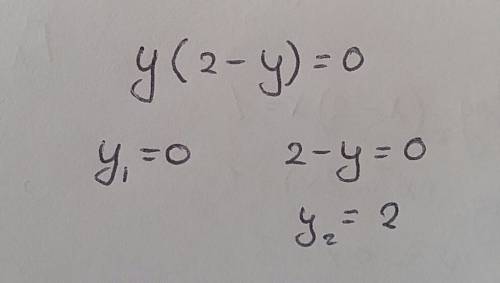 y(2-y)=0
y₁=0 2-y=0
y₂=2